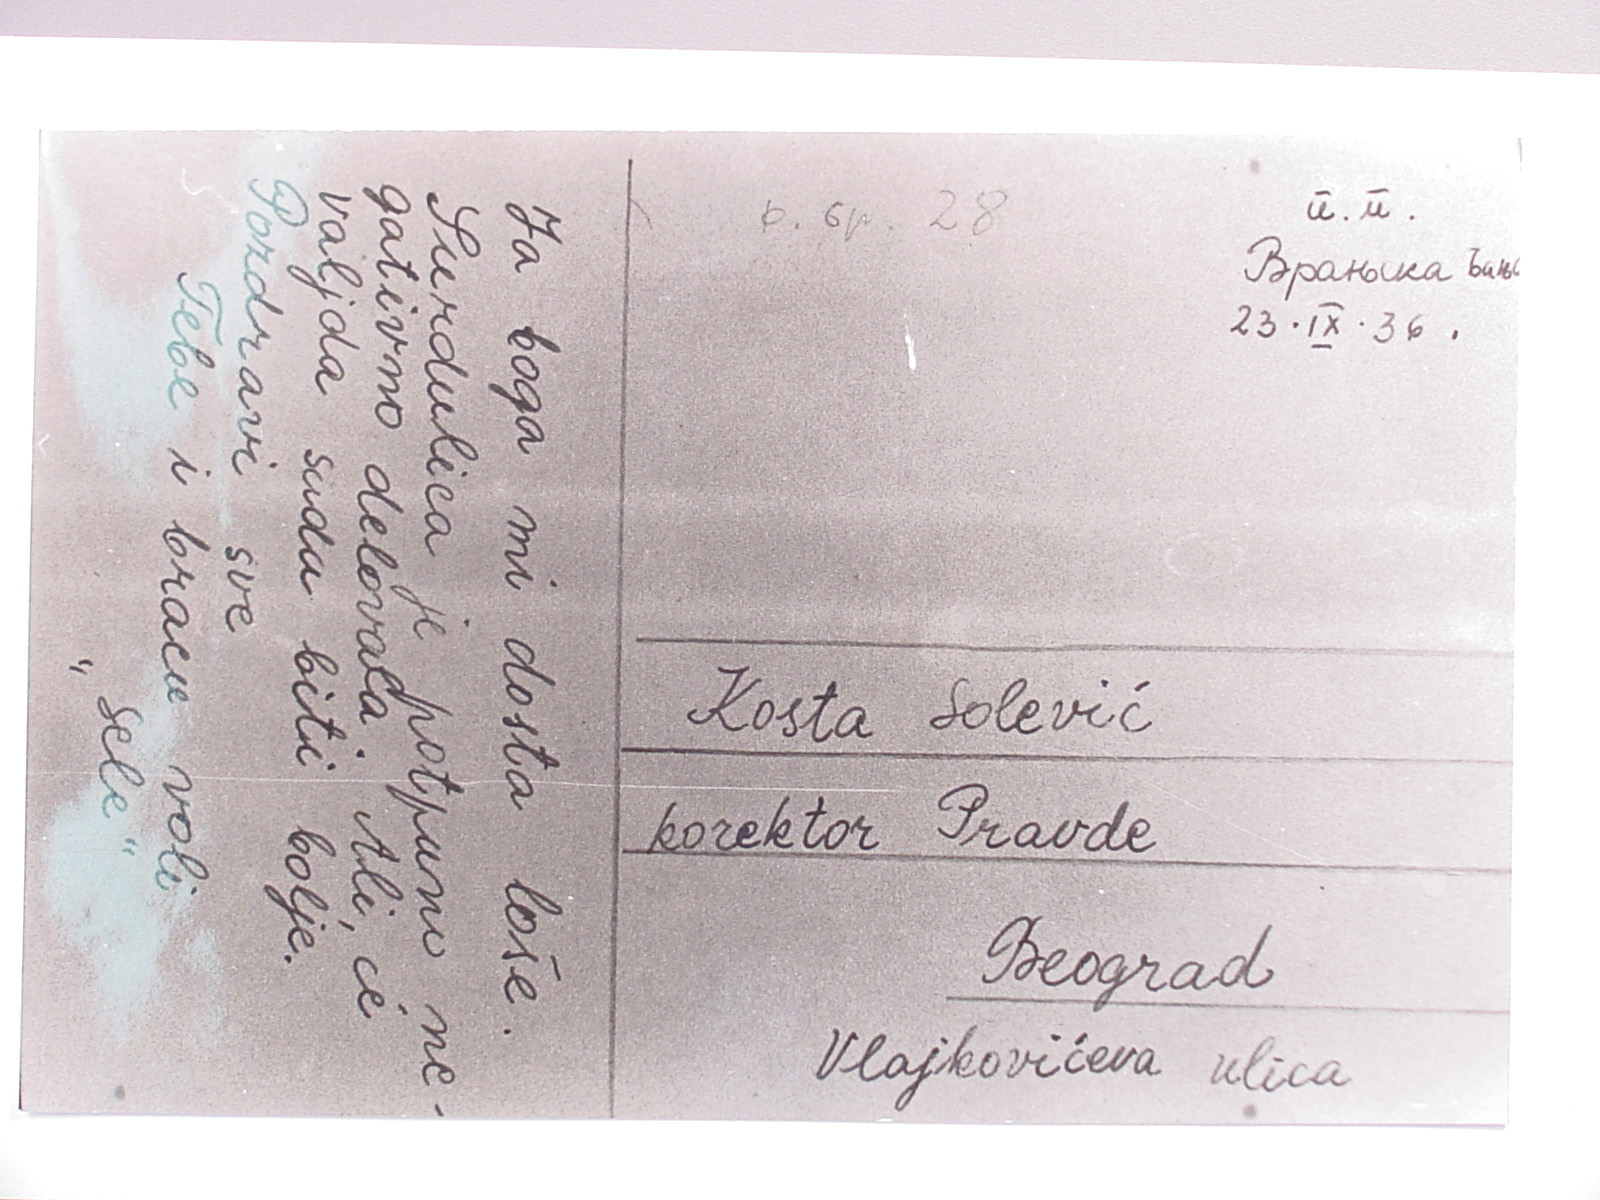 Ja boga mi dosta loše.
Surdulica je potpuno ne-
gativno delovala. Ali, će
valjda sudu biti bolje.
Pozdravi sve
Tebe i bracu voli
„Sele“
28
ū. ū.
Врањска Бања
23.IX.36.
Kosta Solević
korektor Pravde
Beograd
Vlajkovićeva ulica